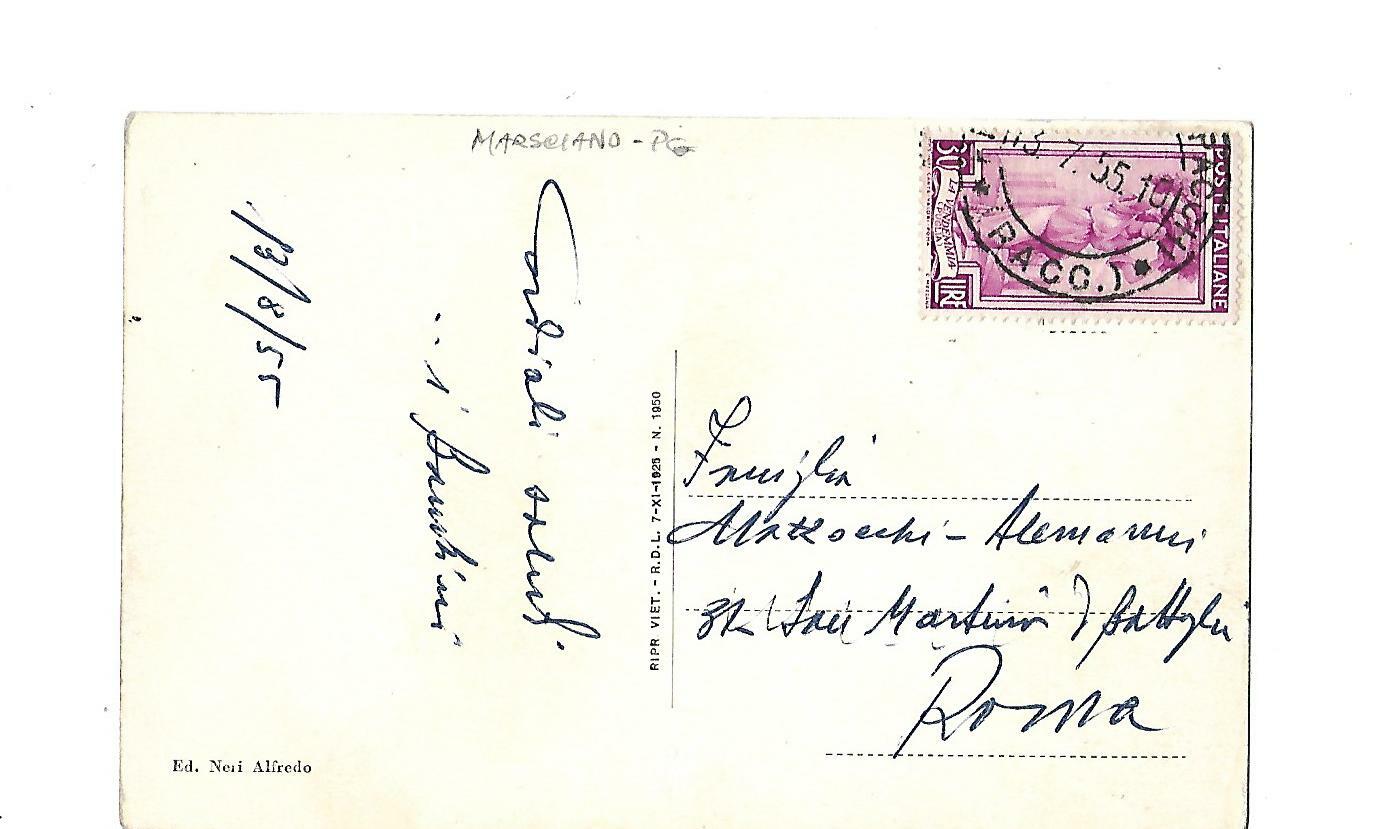 MARSCIANO - PG
13/8/55
Cordiali saluti
i
RIPR VIET. - R.D.L. 7-XI-1925 - N. 1950
30 LIRE
LA VENDEMMIA
(PUGLIA)
POSTE ITALIANE
7.55.10
(RACC.)
Famiglia
Alemanni
San Martino
Roma
Ed. Neri Alfredo